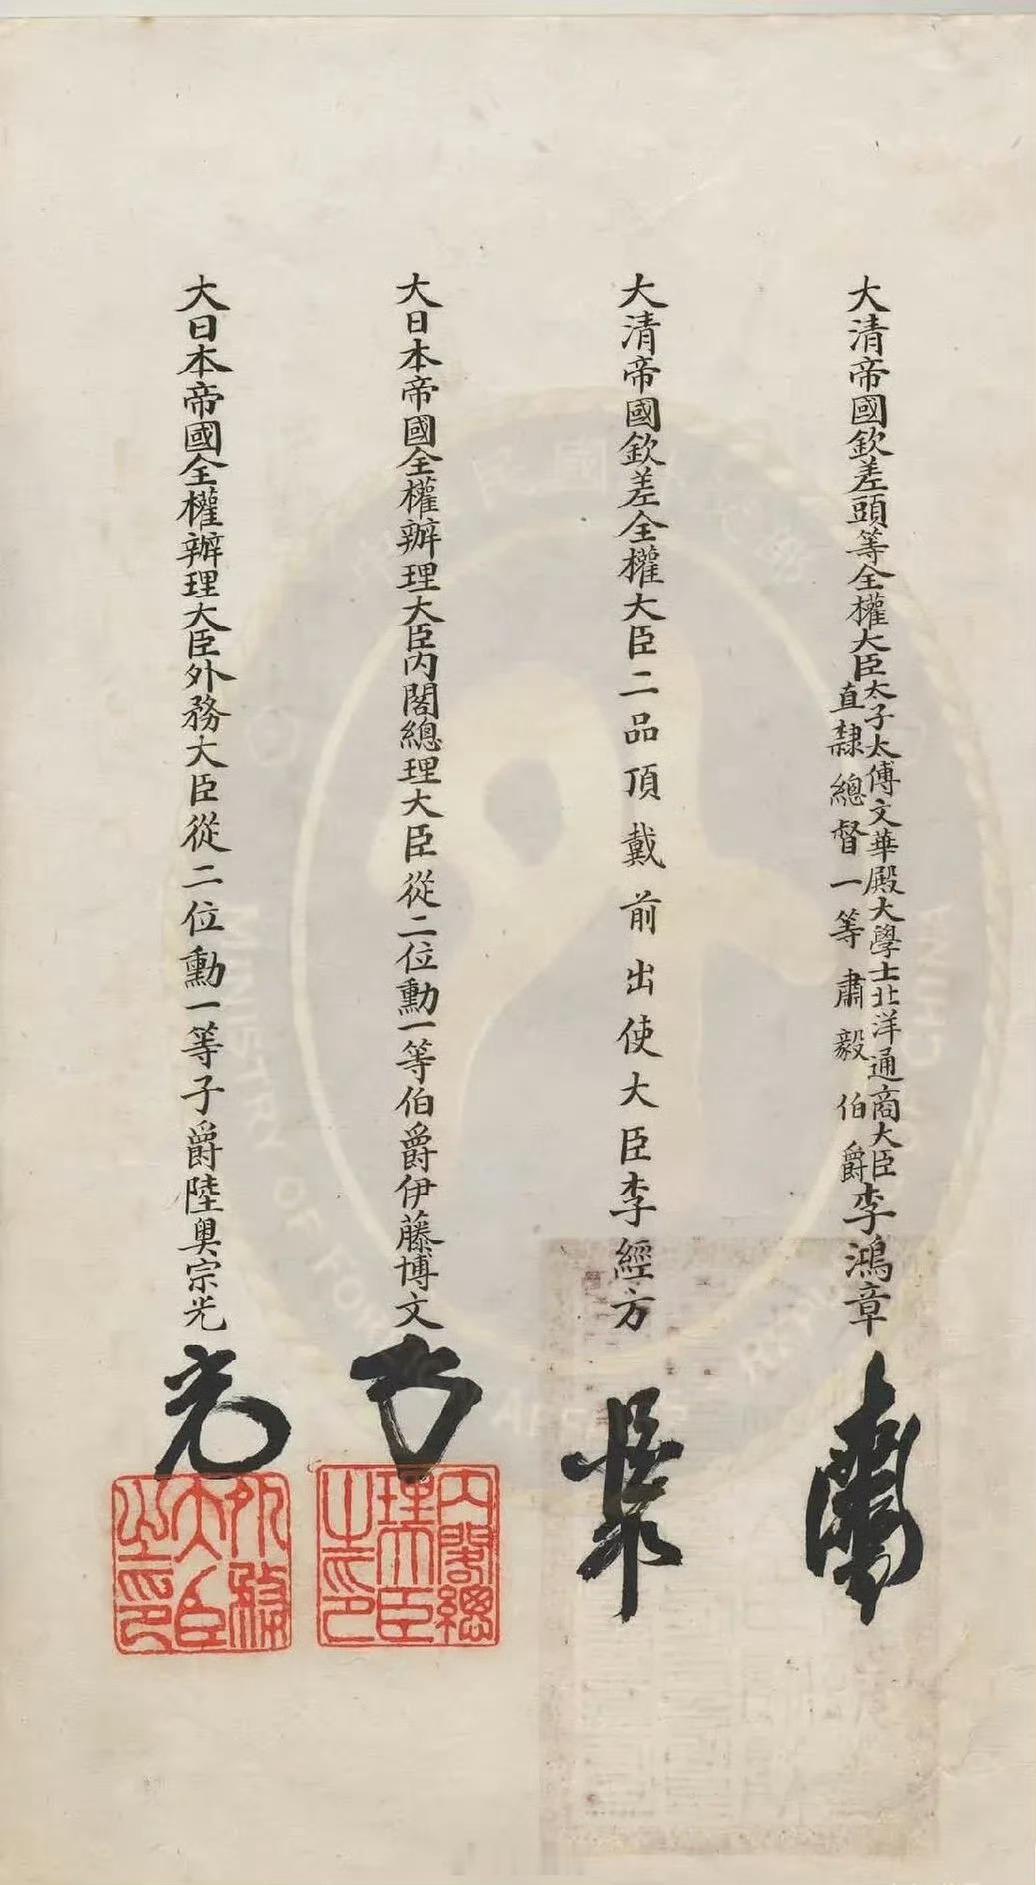 大清帝國欽差頭等全權大臣太子太傅文華殿大學士北洋通商大臣
直隸總督一等肅毅伯爵李鴻章
大清帝國欽差全權大臣二品頂戴前出使大臣李經方
大日本帝國全權辦理大臣內閣總理大臣從二位勳一等伯爵伊藤博文
內閣總理大臣之印
大日本帝國全權辦理大臣外務大臣從二位勳一等子爵陸奧宗光
外務大臣之印
MINISTRY OF FOREIGN AFFAIRS